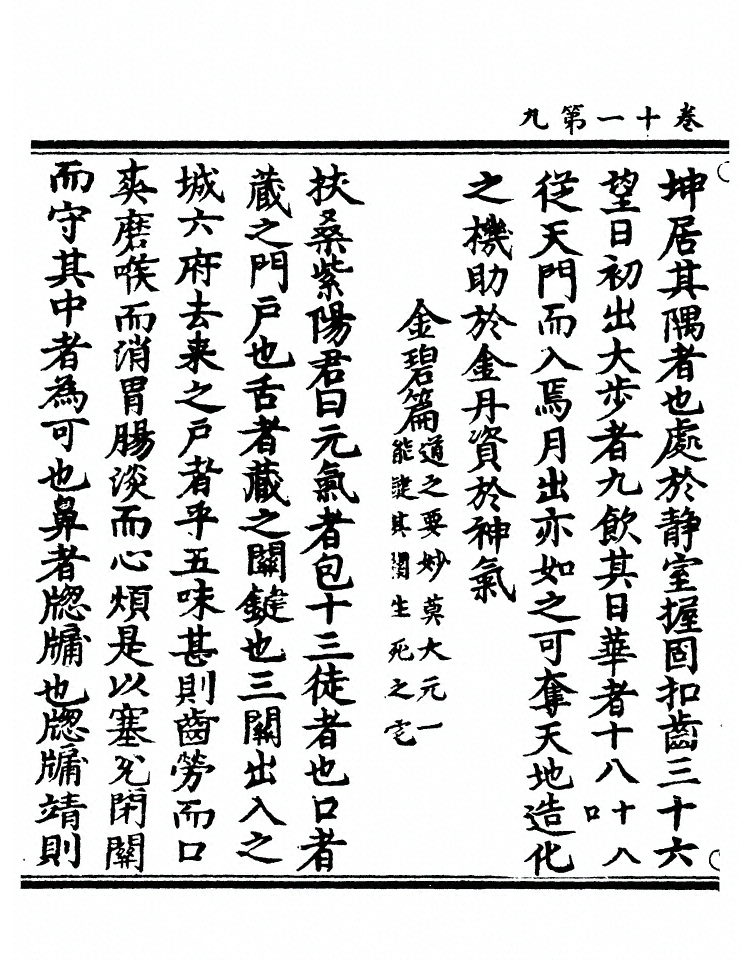 卷十一第九
坤居其隅者也處於静室握固扣齒三十六
望日初出大步者九飲其日華者十八十八口
從天門而入焉月出亦如之可奪天地造化
之機助於金丹資於神氣
金碧篇道之要妙莫大元一能諟其関生死之宅
扶桑紫陽君曰元氣者包十三徒者也口者
藏之門戶也舌者藏之關鍵也三關出入之
城六府去来之戸者乎五味甚則齒勞而口
爽磨喉而消胃腸淡而心煩是以塞兊閉關
而守其中者為可也鼻者牕牖也牕牖靖則